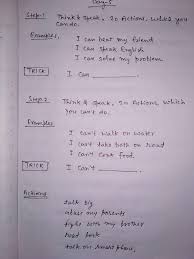 Day-5
Step:1 Think & Speak, 20 Actions, which you
can do.
Examples,
I can beat my friend
I can speak English
I can solve my problem
TRICK I Can
Step:2 Think & Speak, 20 Actions, which
you can't do.
Examples
I can't walk on water
I can't take bath on road
I can't cook food.
TRICK I Can't
Actions
talk big
my parents
fight with my brother
read book
talk on